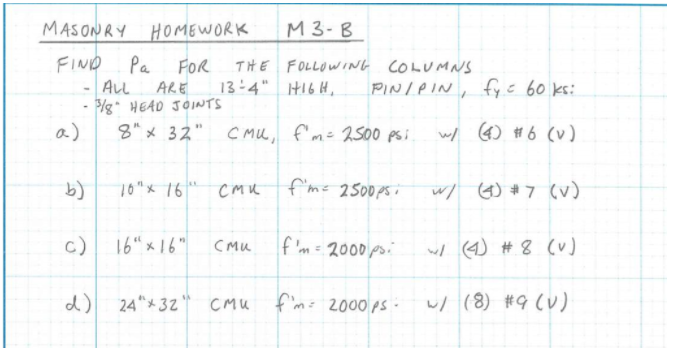 MASONRY HOMEWORK M3-B
FIND Pa FOR THE FOLLOWING COLUMNS
- ALL ARE 13'-4" HIGH, PIN/PIN, fy = 60 ksi
- 3/8" HEAD JOINTS
a) 8" x 32" CMU, f'm = 2500 psi w/ (4) #6 (V)
b) 10" x 16" CMU f'm = 2500 psi w/ (4) #7 (V)
c) 16" x 16" CMU f'm = 2000 psi w/ (4) #8 (V)
d) 24" x 32" CMU f'm = 2000 psi w/ (8) #9 (V)